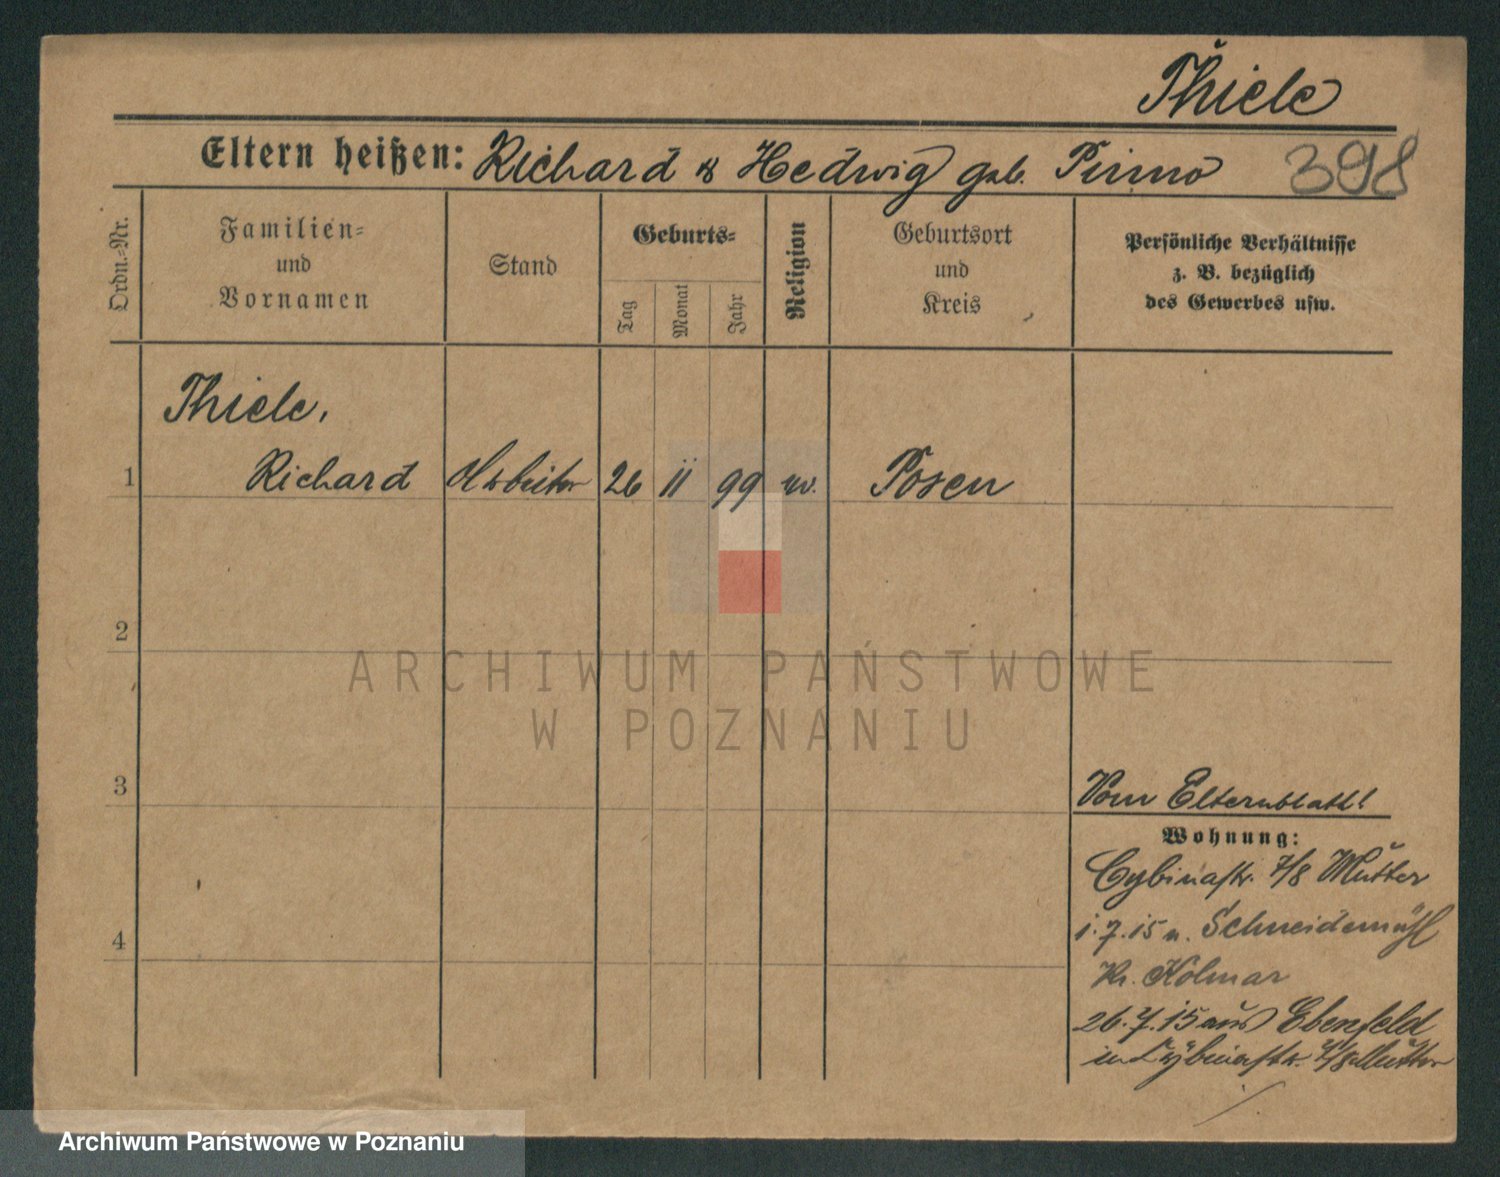 Thiele
Eltern heißen: Richard & Hedwig geb. Pirmo
398
Ordn.-Nr.
Familien-
und
Vornamen
Stand
Geburts-
Tag
Monat
Jahr
Religion
Geburtsort
und
Kreis
Persönliche Verhältnisse
z. B. bezüglich
des Gewerbes usw.
Thiele,
1 Richard Arbeiter 26 11 99 ev. Posen
2
3
4
Vom Elternblatt!
Wohnung:
Cybinastr. 7/8 Mutter
1.7.15 n. Schneidemühl
Kr. Kolmar
26.7.15 aus Ebenfeld
in Cybinastr. 7/8 Mutter
ARCHIWUM PAŃSTWOWE
W POZNANIU
Archiwum Państwowe w Poznaniu